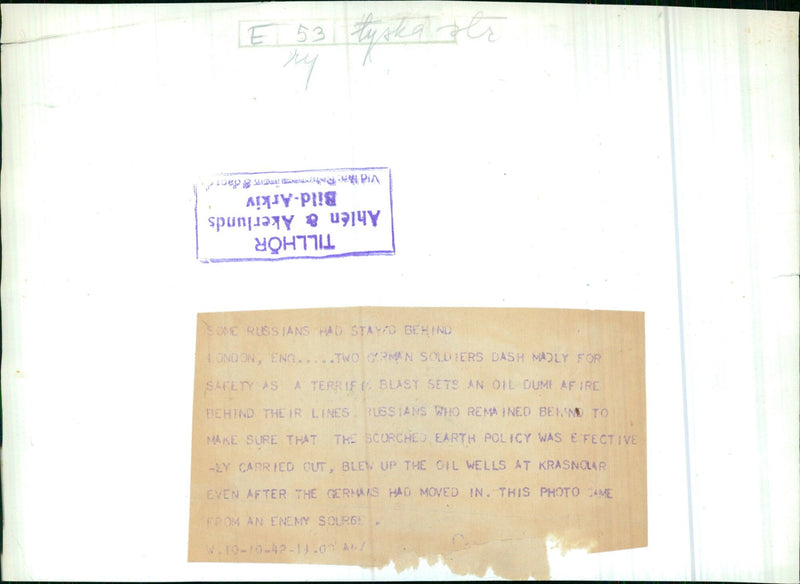 E 53 tyska str
ny
TILLHÖR
Ahlén & Åkerlunds
Bild-Arkiv
SOME RUSSIANS HAD STAYED BEHIND
LONDON, ENG.....TWO GERMAN SOLDIERS DASH MADLY FOR
SAFETY AS A TERRIFIC BLAST SETS AN OIL DUMP AFIRE
BEHIND THEIR LINES. RUSSIANS WHO REMAINED BEHIND TO
MAKE SURE THAT THE SCORCHED EARTH POLICY WAS EFFECTIVE
-LY CARRIED OUT, BLEW UP THE OIL WELLS AT KRASNODAR
EVEN AFTER THE GERMANS HAD MOVED IN. THIS PHOTO CAME
FROM AN ENEMY SOURCE.
W.10-10-42-11.00